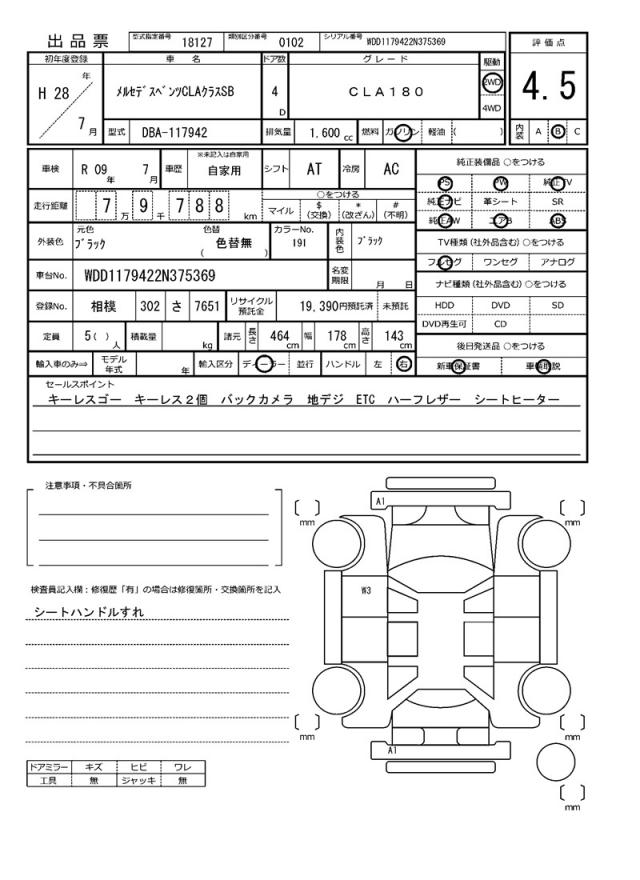 出品票 型式指定番号 18127 類別区分番号 0102 シリアル番号 WDD1179422N375369 評価点
初年度登録 車名 ドア数 グレード 駆動
H 28 年 7 月 ﾒﾙｾﾃﾞｽﾍﾞﾝﾂCLAｸﾗｽSB 4 D CLA180 2WD 4WD 4.5
型式 DBA-117942 排気量 1,600 cc 燃料 ガソリン 軽油 ( ) 内装 A B C
車検 R 09 年 7 月 車歴 ※未記入は自家用 自家用 シフト AT 冷房 AC 純正装備品 ○をつける
PS PW 純正TV
走行距離 7 万 9 千 7 8 8 km ○をつける 純正ナビ 革シート SR
マイル $ (交換) * (改ざん) # (不明) 純正AW エアB ABS
外装色 元色 ﾌﾞﾗｯｸ 色替 色替無 ( ) カラーNo. 191 内装色 ﾌﾞﾗｯｸ TV種類 (社外品含む) ○をつける
フルセグ ワンセグ アナログ
車台No. WDD1179422N375369 名変期限 月 日 ナビ種類 (社外品含む) ○をつける
登録No. 相模 302 さ 7651 リサイクル預託金 19,390円預託済 未預託 HDD DVD SD
DVD再生可 CD
定員 5 ( ) 人 積載量 kg 諸元 長さ 464 cm 幅 178 cm 高さ 143 cm 後日発送品 ○をつける
輸入車のみ⇒ モデル年式 年 輸入区分 ディーラー 並行 ハンドル 左 右 新車保証書 車輌取説
セールスポイント
キーレスゴー キーレス2個 バックカメラ 地デジ ETC ハーフレザー シートヒーター
注意事項・不具合箇所
A1
mm mm
検査員記入欄：修復歴「有」の場合は修復箇所・交換箇所を記入
W3
シートハンドルすれ
mm mm
A1
ドアミラー キズ ヒビ ワレ
工具 無 ジャッキ 無
mm